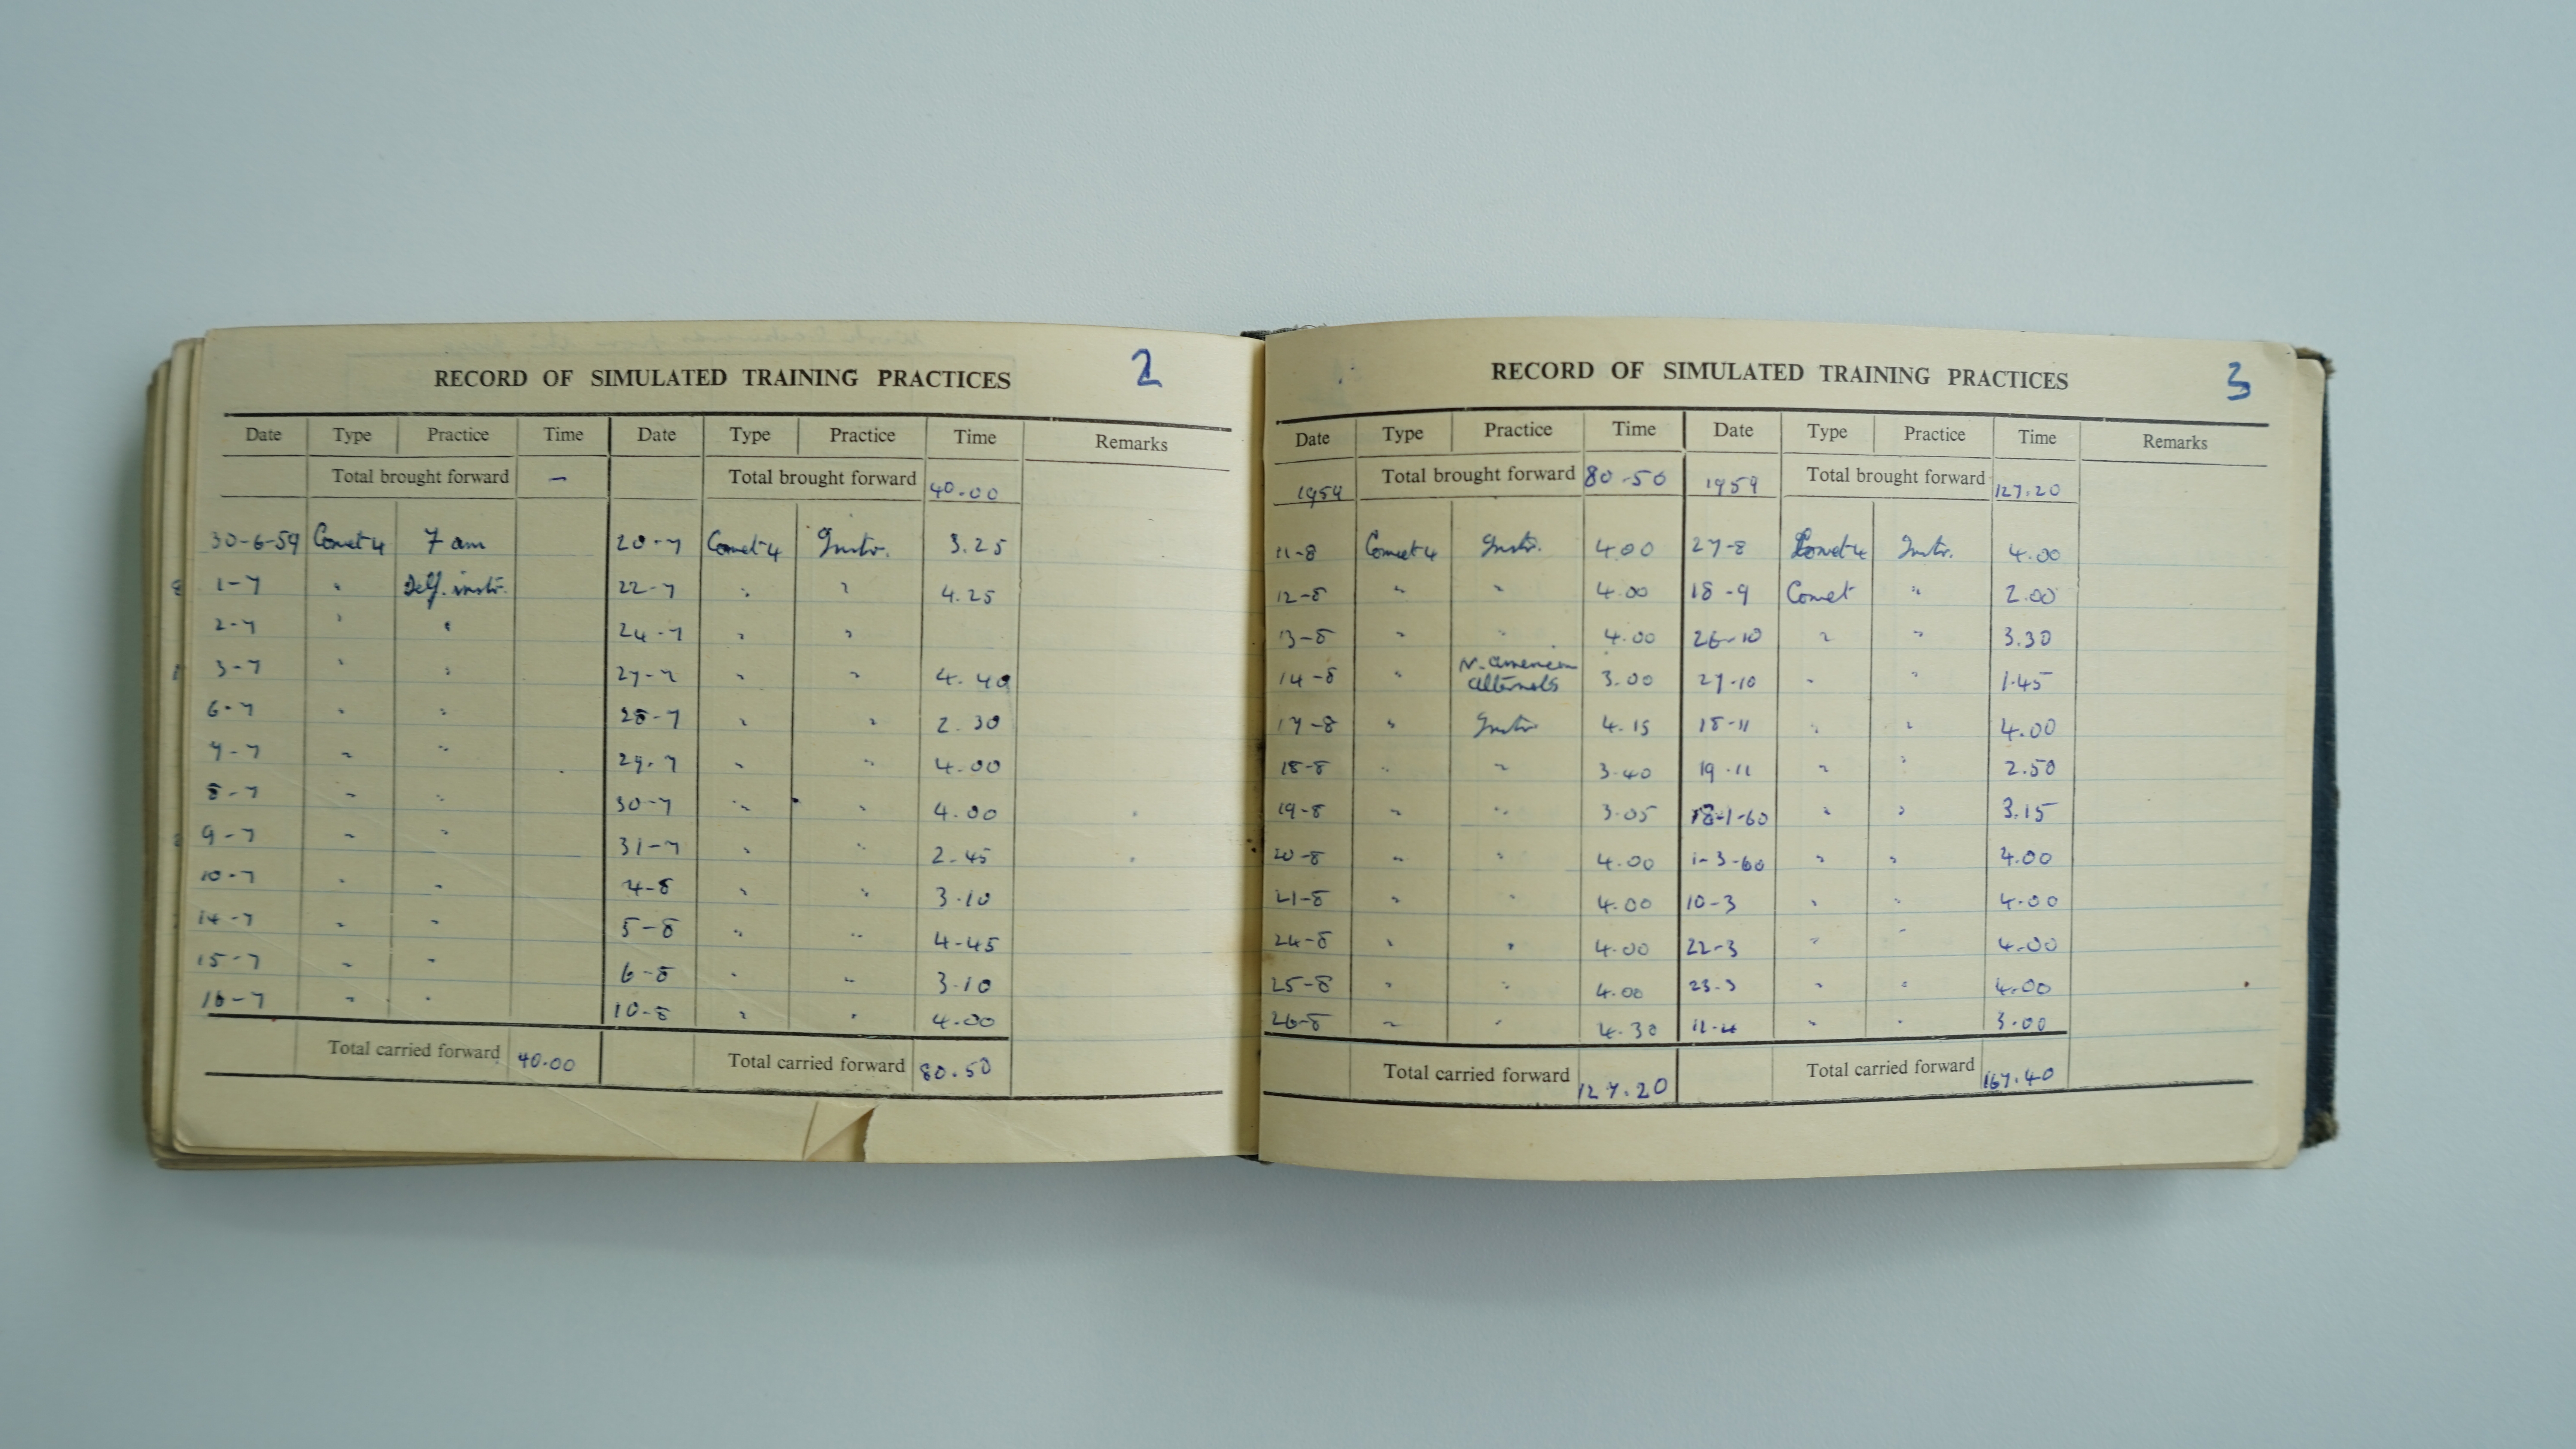 RECORD OF SIMULATED TRAINING PRACTICES 2
Date Type Practice Time Date Type Practice Time Remarks
Total brought forward – Total brought forward 40.00
30-6-59 Comet 4 7 am 20-7 Comet 4 Instr. 3.25
1-7 " Self. instr. 22-7 " " 4.25
2-7 " " 24-7 " "
3-7 " " 27-7 " " 4.40
6-7 " " 28-7 " " 2.30
7-7 " " 29-7 " " 4.00
8-7 " " 30-7 " " 4.00
9-7 " " 31-7 " " 2.45
10-7 " " 4-8 " " 3.10
14-7 " " 5-8 " " 4.45
15-7 " " 6-8 " " 3.10
16-7 " " 10-8 " " 4.00
Total carried forward 40.00 Total carried forward 80.50
RECORD OF SIMULATED TRAINING PRACTICES 3
Date Type Practice Time Date Type Practice Time Remarks
1959 Total brought forward 80.50 1959 Total brought forward 127.20
11-8 Comet 4 Instr. 4.00 27-8 Comet 4 Instr. 4.00
12-8 " " 4.00 18-9 Comet " 2.00
13-8 " " 4.00 26-10 " " 3.30
14-8 " N. american alternats 3.00 27-10 " " 1.45
17-8 " Instr 4.15 18-11 " " 4.00
18-8 " " 3.40 19-11 " " 2.50
19-8 " " 3.05 18-1-60 " " 3.15
20-8 " " 4.00 1-3-60 " " 4.00
21-8 " " 4.00 10-3 " " 4.00
24-8 " " 4.00 22-3 " " 4.00
25-8 " " 4.00 23-3 " " 4.00
26-8 " " 4.30 11-4 " " 3.00
Total carried forward 127.20 Total carried forward 167.40